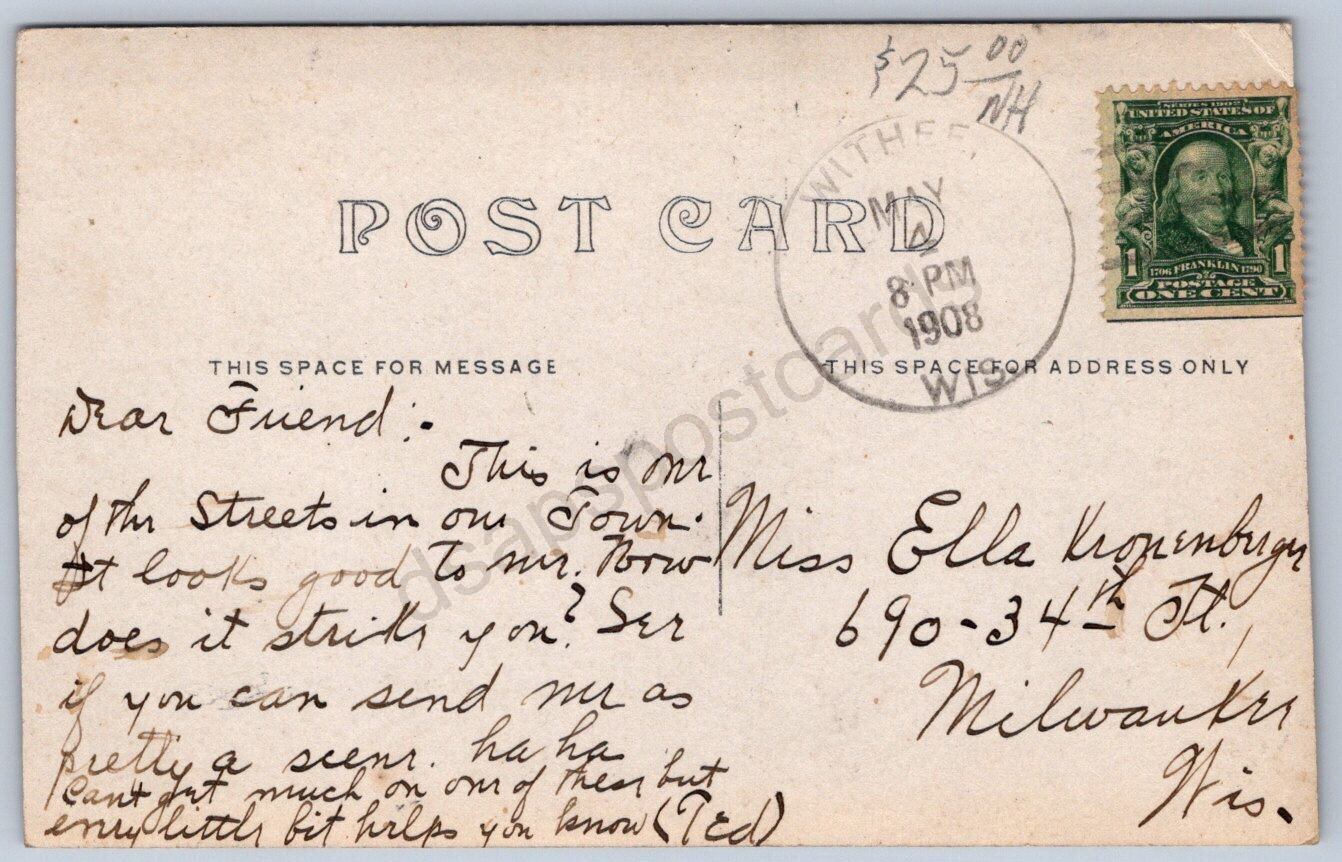 $25 00
NH
WITHEE,
MAY
4
8 PM
1908
WIS.
SERIES 1902
UNITED STATES OF
AMERICA
1 1706 FRANKLIN 1790 1
POSTAGE
ONE CENT
POST CARD
THIS SPACE FOR MESSAGE
THIS SPACE FOR ADDRESS ONLY
Dear Friend:-
This is one
of the Streets in our Town.
It looks good to me. How
does it strike you? See
if you can send me as
pretty a scene. ha ha
Cant get much on one of these but
every little bit helps you know (Ted)
Miss Ella Kronenberger
690-34th St.,
Milwaukee
Wis.
dsapspostcards